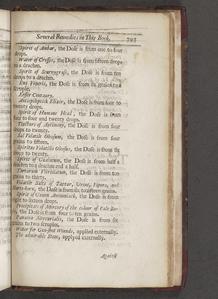 Several Remedies in This Book. 293
Spirit of Amber, the Dose is from one to four
drops.
Water of Cresses, the Dose is from fifteen drops
to a drachm.
Spirit of Scurvygrass, the Dose is from
Ens Veneris, the Dose is from
drops.
Lesser Century.
Antiepileptick Elixir, the Dose from four to
twenty drops.
Spirit of Humane Head, the Dose is from
four and twenty drops.
Tincture of Antimony, the Dose is from four
drops to twenty.
Sal Volatile Oleosum, the Dose is from four
to fifteen grains.
Spiritus Volatilis Oleosus, the Dose is from
to twenty drops.
Spirit of the Dose is from half a
drachm to a drachm and a half.
Tartarum Vitriolatum, the Dose is from ten
grains to thirty.
Volatile Salts of Tartar, Urine, Vipers, and
the Dose is from six to fifteen grains.
Spirit of Gumm Ammoniack, the Dose is from
to sixteen drops.
Precipitate of Mercury of the colour of Pale Ro-
the Dose is from four to ten grains.
Panacea Mercurialis, the Dose is from six
grains to two scruples.
Water for Gun-shot Wounds, applied externally.
The admirable Stone, applyed externally.
Against